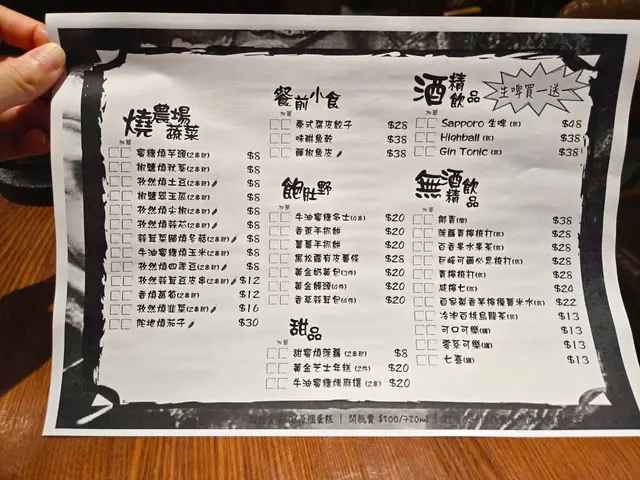 燒 農場蔬菜
蜜糖燒芋頭(2串計) $8
椒鹽燒秋葵(2串計) $8
孜然燒土豆(2串計) $8
椒鹽翠玉瓜(2串計) $8
孜然燒尖椒(2串計) $8
孜然燒蒜芯(2串計) $8
蒜茸菜脯燒冬菇(2串計) $8
牛油蜜糖燒玉米(2串計) $8
孜然燒四季豆(2串計) $8
孜然蒜茸豆皮串(2串計) $12
香燒茼蒿(2串計) $12
孜然燒韭菜(2串計) $16
燒茄子 $30
餐前小食
泰式腐皮餃子 $28
味醂魚乾 $38
椒鹽魚皮 $38
飽肚野
牛油蜜糖多士(6串) $20
香蔥手抓餅 $20
手抓餅 $20
黑松露有皮薯條 $28
黃金奶黃包(3件) $20
黃金饅頭(6件) $20
香蒜蒜茸包(6件) $20
甜品
甜蜜燒菠蘿(2串計) $8
黃金芝士年糕(2件) $20
牛油蜜糖烤麻糬(2串) $20
酒精飲品
生啤買一送一
Sapporo 生啤(杯) $48
Highball(杯) $38
Gin Tonic(杯) $38
無酒精飲品
椰青(個) $38
菠蘿青檸梳打(杯) $28
百香果水果茶(杯) $28
巨峰可爾必思梳打(杯) $28
青檸梳打(杯) $28
咸檸七(杯) $24
百家製香茅檸檬薏米水(杯) $22
冷泡白桃烏龍茶(杯) $13
可口可樂(罐) $13
零系可樂(罐) $13
七喜(罐) $13
個蛋糕 | 開瓶費 $100/720ml |